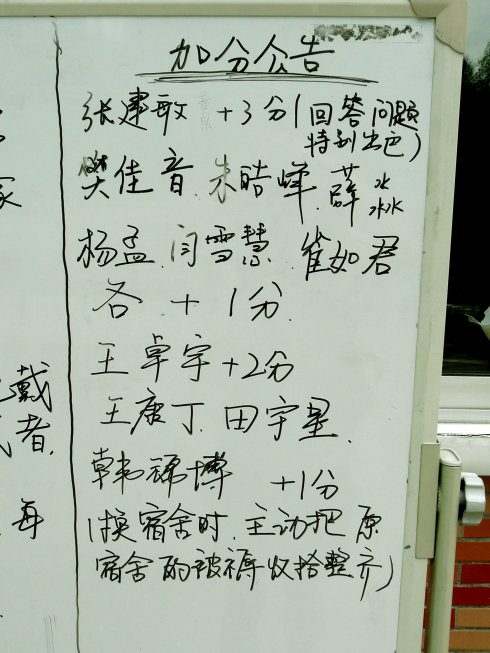 加分公告
张建敏 +3分(回答问题
特别出色)
樊佳音、朱皓峰、薛淼
杨孟、闫雪慧、崔如君
各 + 1分.
王卓宇+2分
王康丁、田宇星、
韩瑞博 +1分
(换宿舍时,主动把原
宿舍的被褥收拾整齐)
戴
者.
每